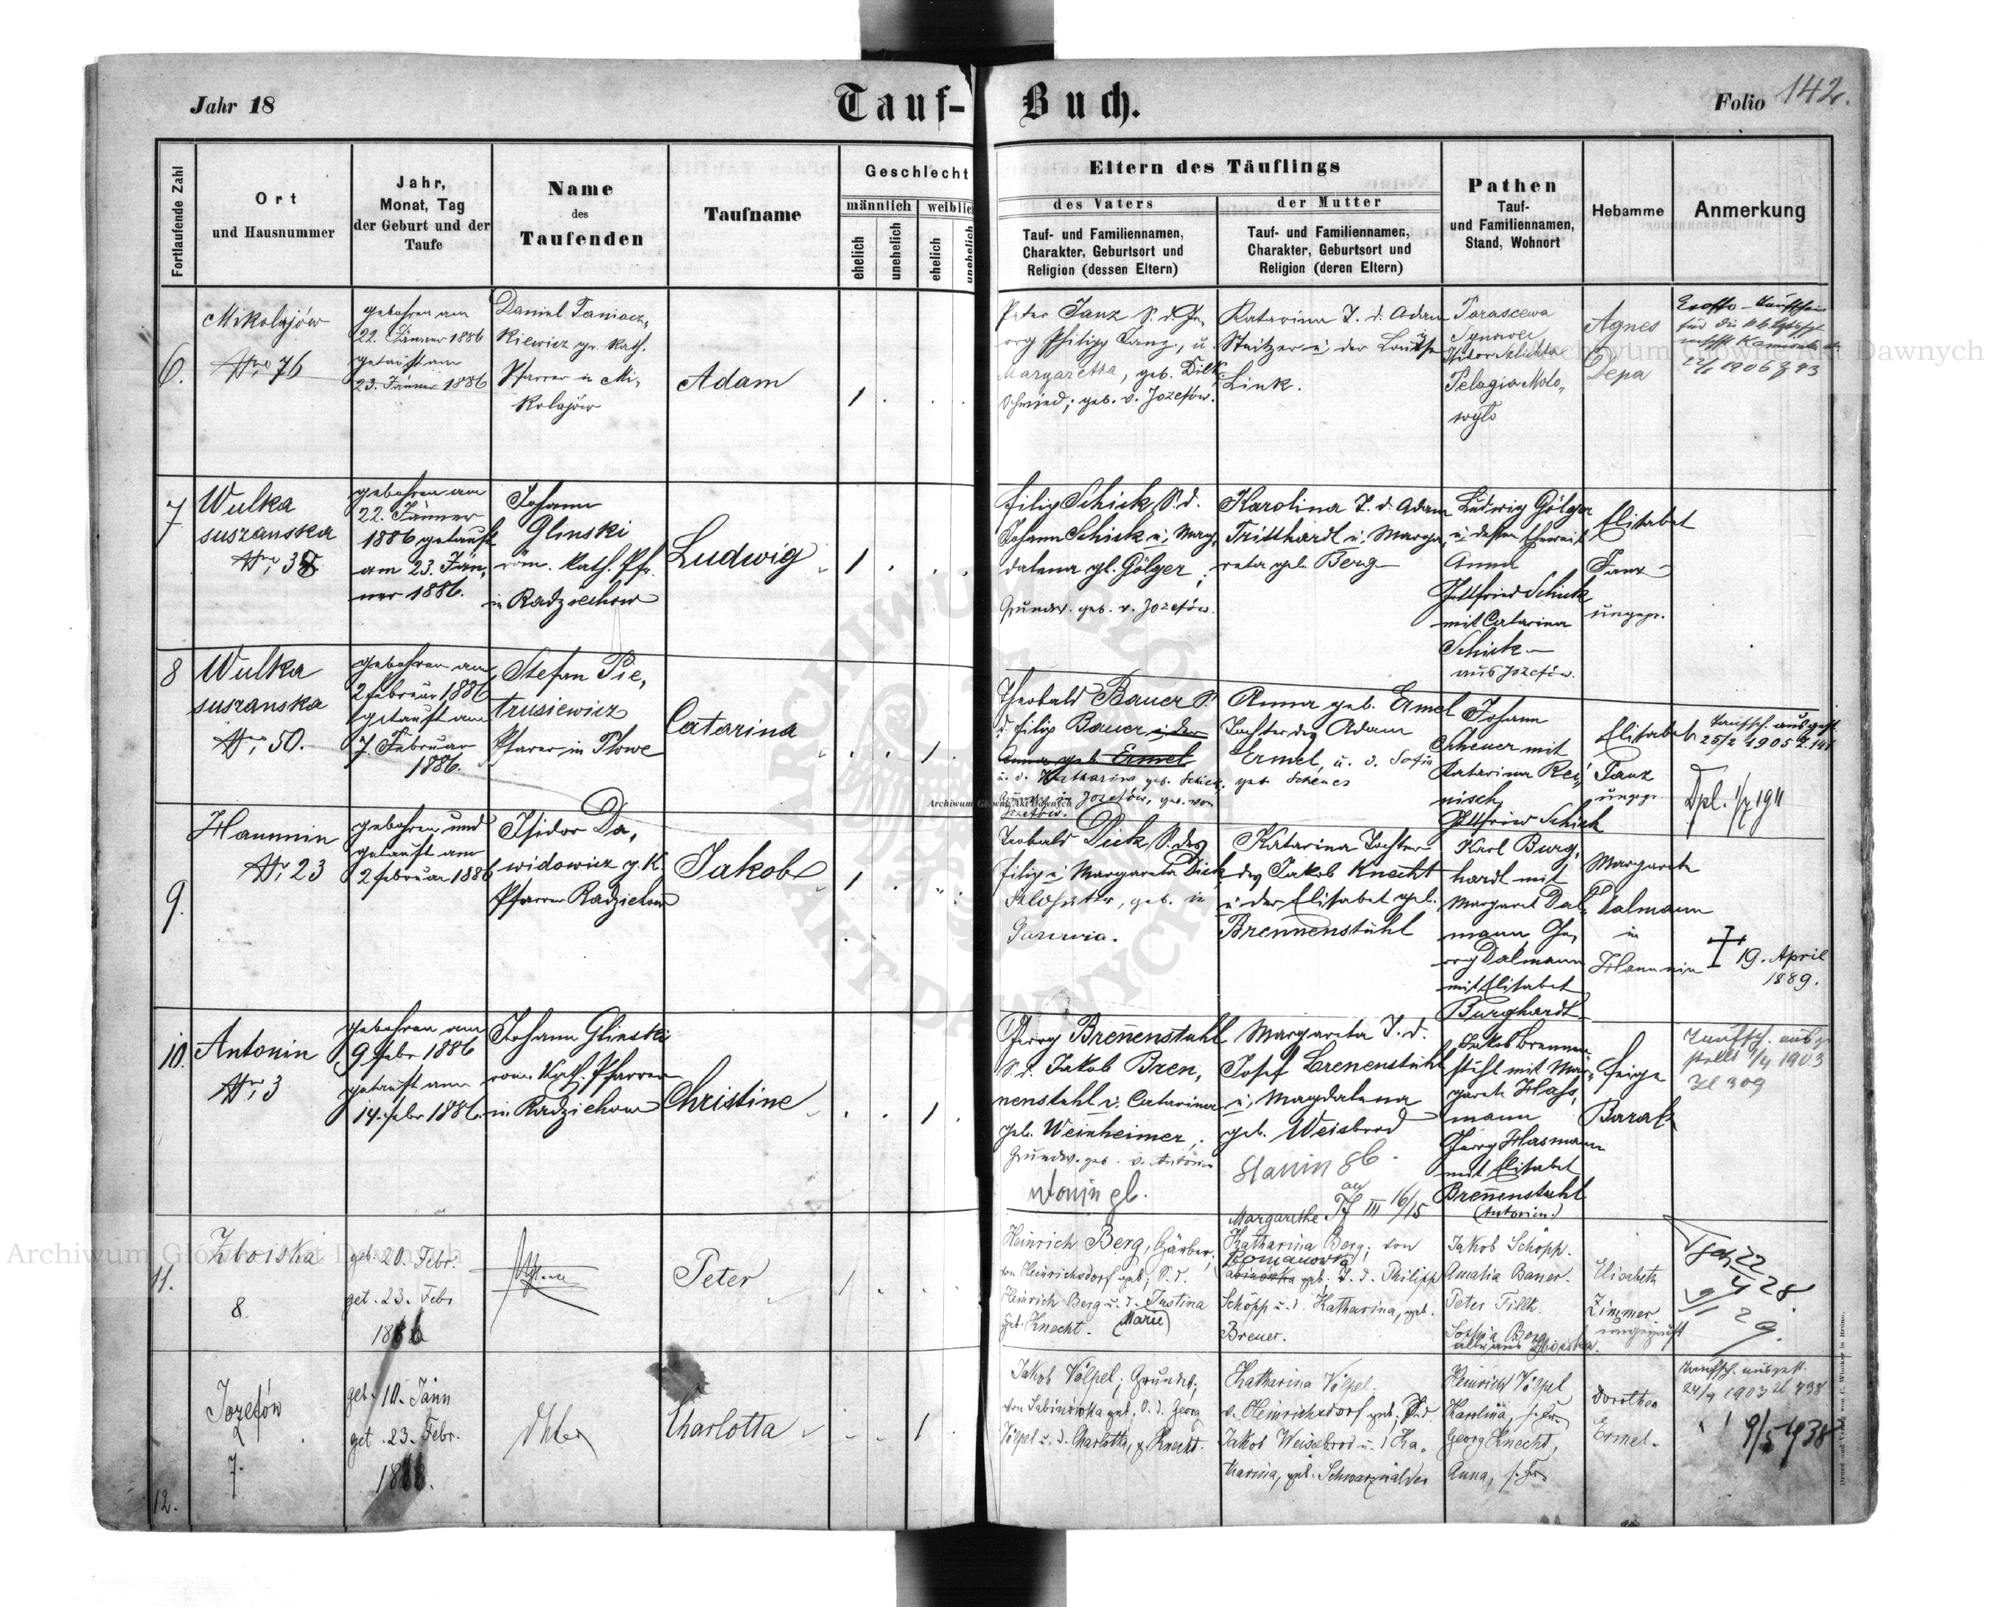 Jahr 18
Tauf-Buch.
Folio 142.
Fortlaufende Zahl
Ort
und Hausnummer
Jahr,
Monat, Tag
der Geburt und der
Taufe
Name
des
Taufenden
Taufname
Geschlecht
männlich
weiblich
ehelich
unehelich
ehelich
unehelich
Eltern des Täuflings
des Vaters
Tauf- und Familiennamen,
Charakter, Geburtsort und
Religion (dessen Eltern)
der Mutter
Tauf- und Familiennamen,
Charakter, Geburtsort und
Religion (deren Eltern)
Pathen
Tauf-
und Familiennamen,
Stand, Wohnort
Hebamme
Anmerkung
6.
Mikolajów
Nro 76
gebohren am
22. Jänner 1886
getauft am
23. Jänner 1886
Daniel Taniacz-
kiewicz gr. kath.
Pfarrer in Mi-
kolajów
Adam
1
Peter Tanz S. d. Ge-
org Philipp Tanz, u.
Margaretha, geb. Dilk
Schmied; geb. v. Jozefów.
Katarina T. d. Adam
Link.
Parascewa
Pelagia Molo-
Agnes
Depa
1906 Z 43
7
Wulka
suszanska
Nro 38
gebohren am
22. Jänner
1886 getauft
am 23. Jän-
ner 1886.
Johann
Glinski
röm. kath. Pfr.
in Radziechow
Ludwig
1
Filip Schick S. d.
Johann Schick u. Mag-
dalena gb. Gölger;
Grundw. geb. v. Jozefów.
Karolina T. d. Adam
Tritthardt u. Marga-
reta geb. Berg
Ludwig Gölger
u. dessen Eheweib
Anna
Gottfried Schick
mit Catarina
Schick
aus Jozefów.
Elisabet
Tanz
ungepr.
8
Wulka
suszanska
Nro 50.
gebohren am
2 Februar 1886
getauft am
7. Februar
1886.
Stefan Pie-
trusiewicz
Pfarrer in Plowe
Catarina
1
Theobald Bauer S.
d. Filip Bauer u. der
Anna geb. Ermel
u. d. Katharina geb. Schick,
Grundw. in Jozefów, geb. von
Jozefów.
Anna geb. Ermel
Tochter des Adam
Ermel, u. d. Sofia
geb. Scheuer
Johann
Scheuer mit
Katarina Rei-
nisch,
Gottfried Schick
Elisabet
Tanz
ungepr
Taufsch. ausgest.
25/2 1905 Z. 141
Dpl. 1/7 1911
9.
Hanunin
Nr 23
gebohren und
getauft am
2 Februar 1886
Isidor Da-
widowicz g. K.
Pfarrer Radziechow
Jakob
1
Teobald Dick S. des
Filip u. Margareta Dick
Katarina Tochter
des Jakob Knecht
u. der Elisabet geb.
Brennenstuhl
Karl Burg-
hardt mit
Margaret Dal-
mann Ge-
org Dalmann
mit Elisabet
Burghardt
Margareta
Dalmann
in
Hanunin
19. April
1889.
10.
Antonin
Nro 3
gebohren am
9 Febr 1886
getauft am
14. Febr 1886.
Johann Glinski
röm. Kath. Pfarrer
in Radziechow
Christine
1
Georg Brenenstuhl
S. d. Jakob Bren-
nenstuhl u. Catarina
geb. Weinheimer;
Grundw. geb. v. Antonin
Margareta T. d.
Josef Brenenstuhl
u. Magdalena
geb. Weisbrod
Stanin gb.
III 16/15
Jakob Brennen-
stuhl mit Mar-
gareth Hass-
mann
Georg Hasmann
mit Elisabet
Brenenstuhl
(Antonin.)
Feige
Barak
Taufsch. ausge-
stellt 1/4 1903
Zl 309
11.
Zboiska
8.
geb. 20. Febr.
get. 23. Febr
1886
Peter
1
Heinrich Berg, Gärber,
von Heinrichsdorf geb., S. d.
Heinrich Berg u. d. Justina
(Marie)
geb. Knecht.
Margarethe
Katharina Berg; von
Romanowka
geb. T. d. Philipp
Schöpp u. d. Katharina, geb.
Breuer.
Jakob Schöpp.
Amalia Bauer.
Peter Filth.
Sophia Berg
alle aus Zboiska.
Elisabeth
Zimmer
ungeprüft
22/4 28.
9/1 29.
12.
Jozefów
7.
geb. 10. Jänn
get. 23. Febr.
1886.
Charlotta
1
Jakob Völpel, Grundw.
von Sabinówka geb., S. d. Georg
Völpel u. d. Charlotta, g. Knecht.
Katharina Völpel.
v. Heinrichsdorf geb.,
Jakob Weissbrod u. d. Ka-
tharina, geb. Schwarzwälder
Heinrich Völpel
Karolina, s. Fr.
Georg Knecht,
Anna, s. Fr.
Dorothea
Ermel.
Taufsch. ausgest.
24/9 1903 Zl 738
9/5 1938
Archiwum Główne Akt Dawnych
Archiwum Główne Akt Dawnych
Archiwum Główne Akt Dawnych